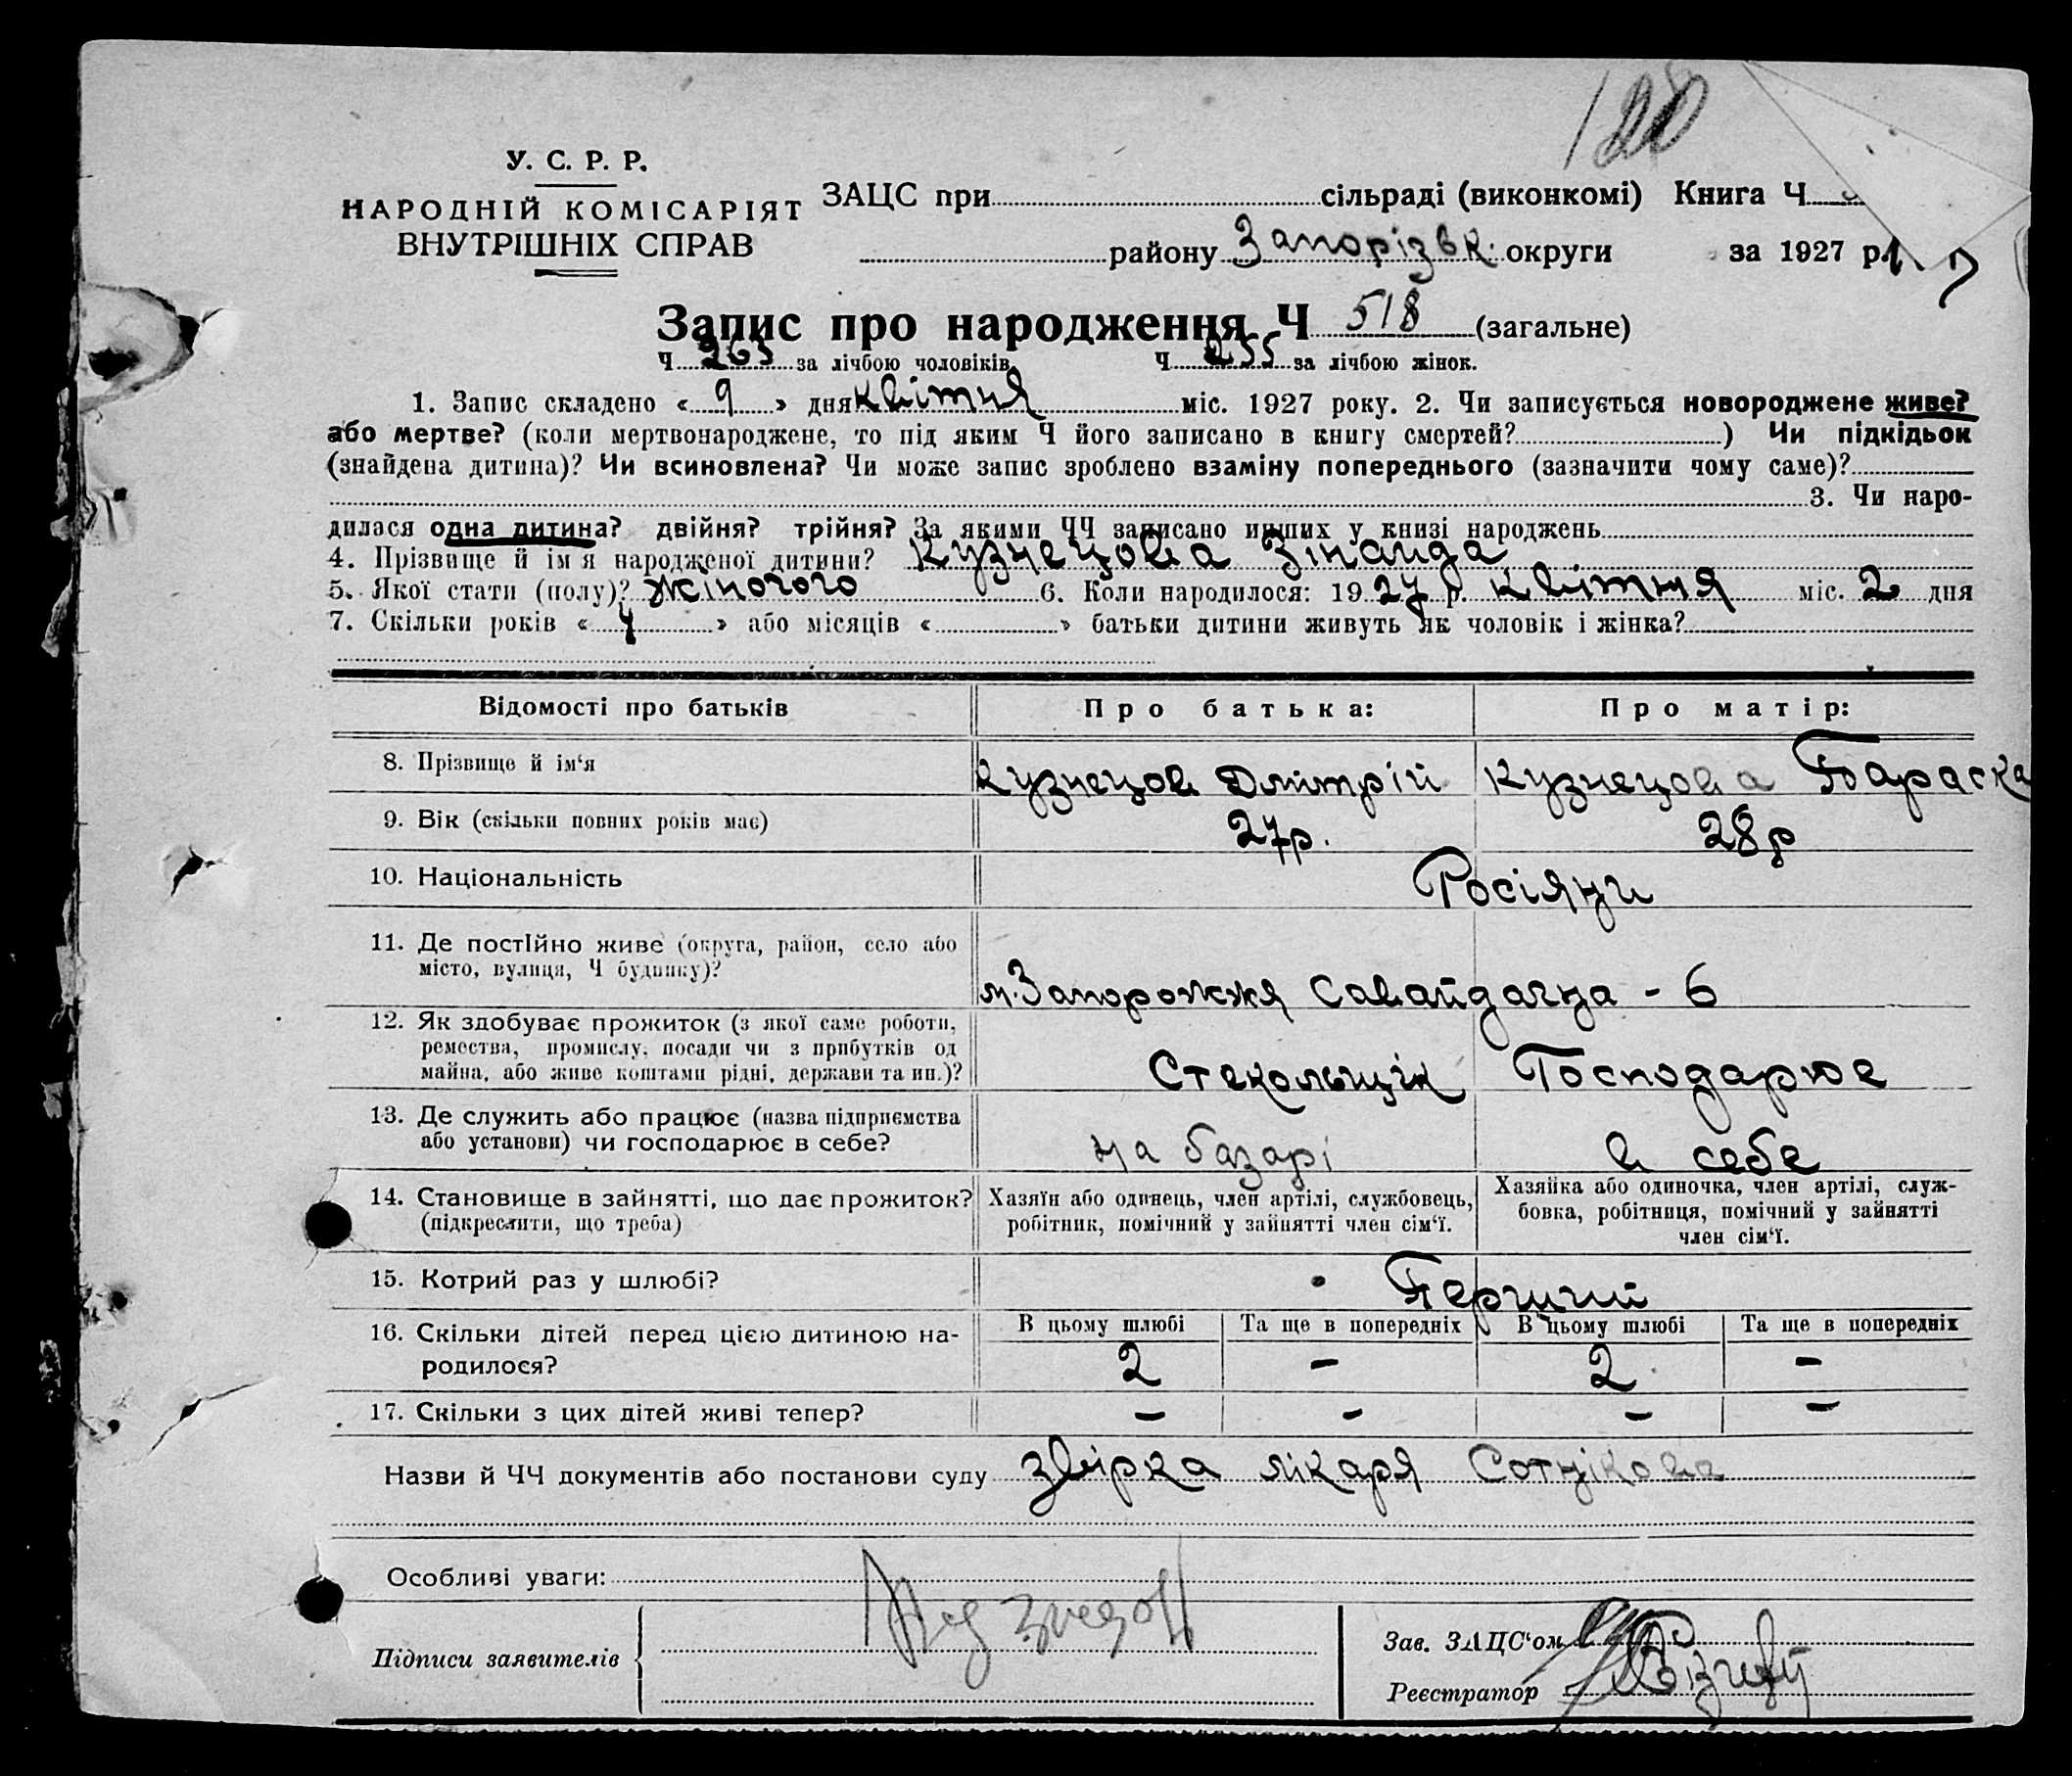 120
У. С. Р. Р.
НАРОДНІЙ КОМІСАРІЯТ
ВНУТРІШНІХ СПРАВ
ЗАЦС при сільраді (виконкомі) Книга Ч
району Запорізьк. округи за 1927 р.
Запис про народження Ч 518 (загальне)
Ч 263 за лічбою чоловіків Ч 255 за лічбою жінок.
1. Запис складено « 9 » дня квітня міс. 1927 року. 2. Чи записується новороджене живе?
або мертве? (коли мертвонароджене, то під яким Ч його записано в книгу смертей? ) Чи підкідьок
(знайдена дитина)? Чи всиновлена? Чи може запис зроблено взаміну попереднього (зазначити чому саме)?
3. Чи наро-
дилася одна дитина? двійня? трійня? За якими ЧЧ записано инших у книзі народжень
4. Прізвище й ім'я народженої дитини? Кузнецова Зінаида
5. Якої стати (полу)? жіночого 6. Коли народилося: 1927 р. квітня міс. 2 дня
7. Скільки років « 4 » або місяців « » батьки дитини живуть як чоловік і жінка?
Відомості про батьків Про батька: Про матір:
8. Прізвище й ім'я Кузнецов Дмітрій Кузнецова Параска
9. Вік (скільки повних років має) 27р. 28р
10. Національність Росіяни
11. Де постійно живе (округа, район, село або
місто, вулиця, Ч будинку)?
м. Запорожжя Савайдачна - 6
12. Як здобуває прожиток (з якої саме роботи,
ремества, промислу, посади чи з прибутків од
майна, або живе коштами рідні, держави та ин.)?
Стекольщік Господарює
13. Де служить або працює (назва підприємства
або установи) чи господарює в себе?
на базарі в себе
14. Становище в зайнятті, що дає прожиток?
(підкреслити, що треба)
Хазяїн або одинець, член артілі, службовець,
робітник, помічний у зайнятті член сім'ї.
Хазяйка або одиночка, член артілі, служ-
бовка, робітниця, помічний у зайнятті
член сім'ї.
15. Котрий раз у шлюбі? Перший
16. Скільки дітей перед цією дитиною на-
родилося?
В цьому шлюбі Та ще в попередніх В цьому шлюбі Та ще в попередніх
2 - 2 -
17. Скільки з цих дітей живі тепер? - - - -
Назви й ЧЧ документів або постанови суду звірка лікаря Сотнікова
Особливі уваги:
Підписи заявителів
Зав. ЗАЦС'ом
Реєстратор